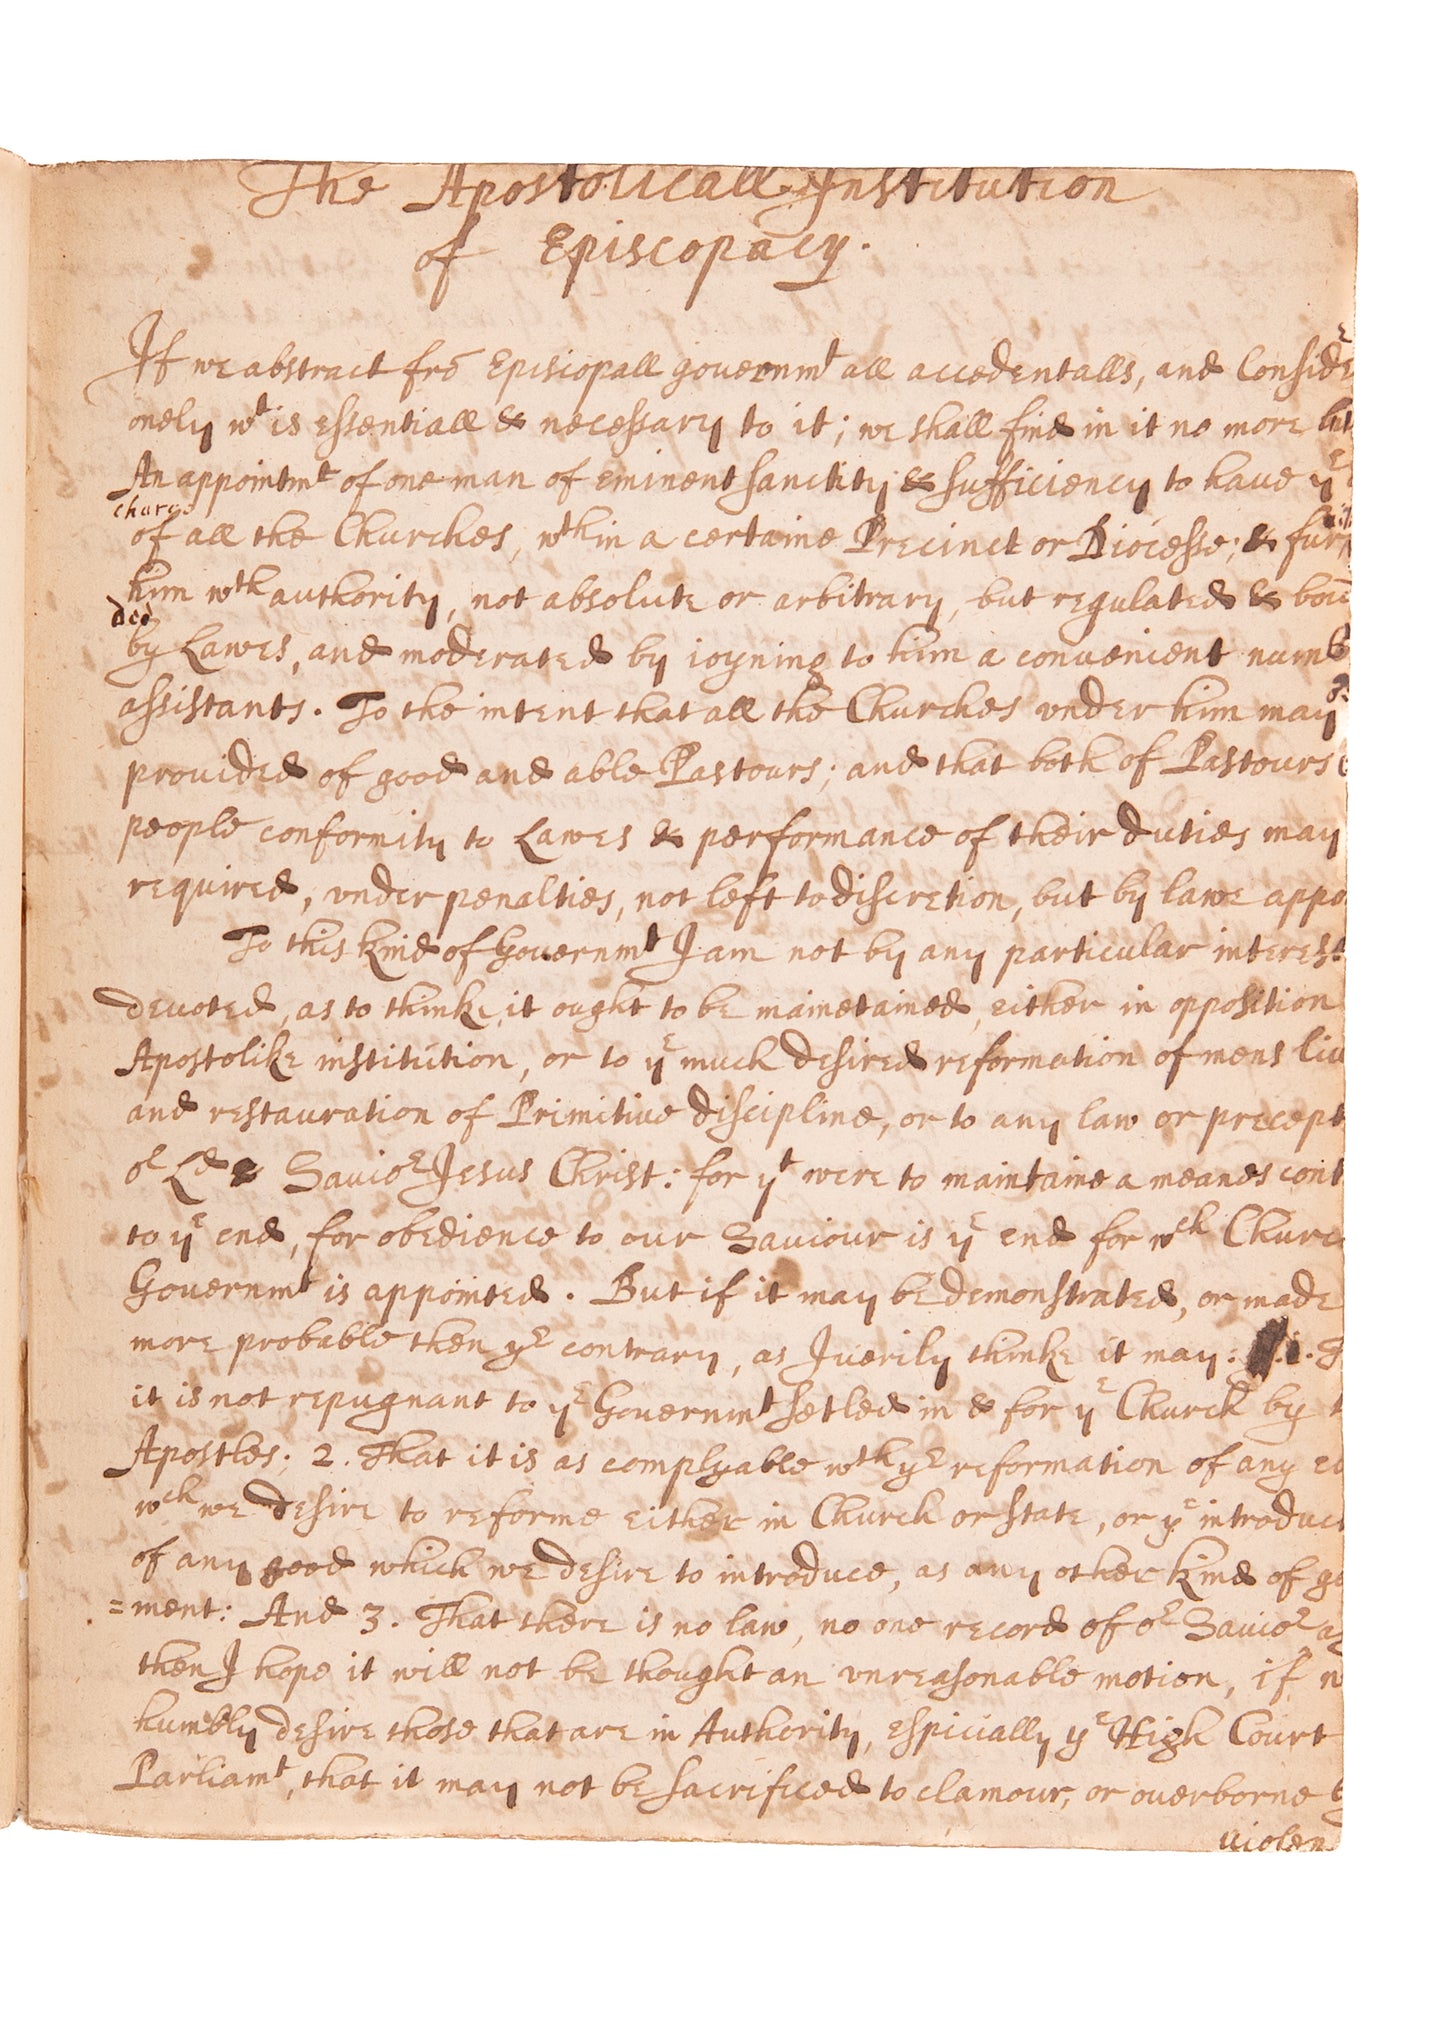 The Apostolicall Institution
of Episcopacy.
If we abstract frō Episcopall gouernmt all accedentalls, and Conside
onely wt is essentiall & necessary to it; we shall find in it no more but
An appointmt of one man of eminent sanctity & sufficiency to haue ye
charge
of all the Churches, wthin a certaine Precinct or Diocesse; & furn
him wth authority, not absolute or arbitrary, but regulated & boū
ded
by Lawes, and moderated by ioyning to him a conuenient numb
assistants. To the intent that all the Churches vnder him may
prouided of good and able Pastours; and that both of Pastours
people conformity to Lawes & performance of their duties may
required, vnder penalties, not left to discretion, but by lawe appo
To this kind of Gouernmt I am not by any particular interest
deuoted, as to thinke it ought to be mainetained either in opposition
Apostolike institution, or to ye much desired reformation of mens liu
and restauration of Primitiue discipline, or to any law or precept
or Ld & Sauior Jesus Christ: for yt were to maintaine a meanes cont
to ye end, for obedience to our Saviour is ye end for wch Churc
Gouernmt is appointed. But if it may be demonstrated, or made
more probable then ye contrary, as I verily thinke it may: .i.
it is not repugnant to ye Gouernmt setled in & for ye Church by t
Apostles; 2. That it is as complyable wth ye reformation of any e
wch we desire to reforme either in Church or state, or ye introduct
of any good which we desire to introduce, as any other kind of go
=ment: And 3. That there is no law, no one record of or Sauior ag
then I hope it will not be thought an vnreasonable motion, if w
humbly desire those that are in Authority, espicially ye High Court
Parliamt, that it may not be sacrificed to clamour, or ouerborne b
violen